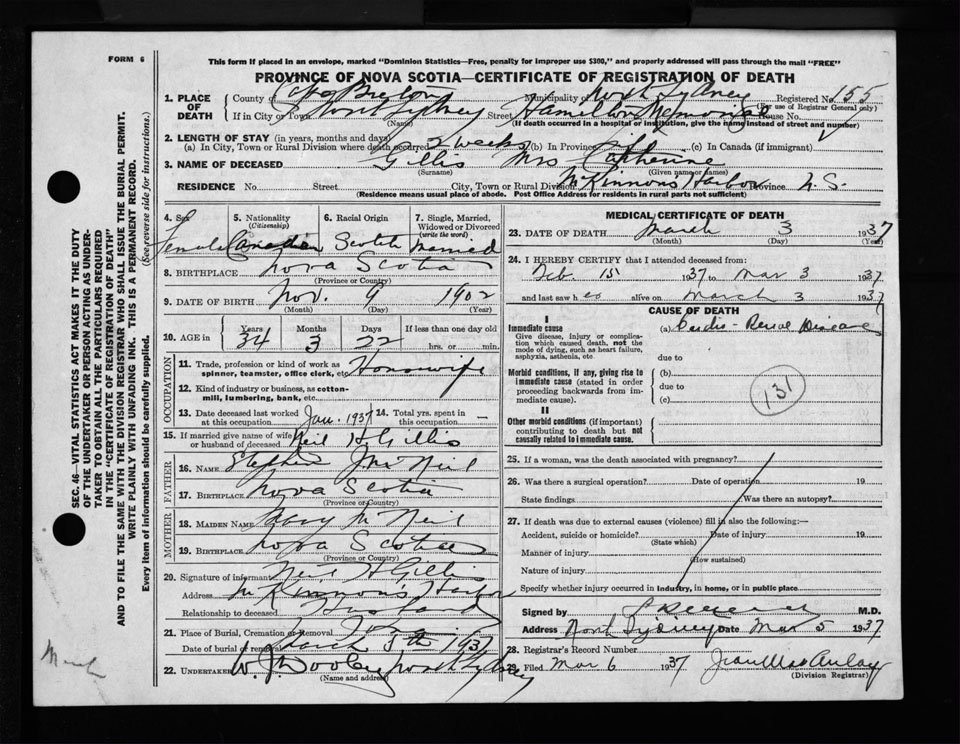 FORM 6
This form if placed in an envelope, marked "Dominion Statistics—Free, penalty for improper use $300," and properly addressed will pass through the mail "FREE"
PROVINCE OF NOVA SCOTIA—CERTIFICATE OF REGISTRATION OF DEATH
1. PLACE OF DEATH
County of Cape Breton Municipality of North Sydney Registered No. 155
(For use of Registrar General only)
If in City or Town North Sydney Street Hamilton Memorial House No.
(Name) (If death occurred in a hospital or institution, give the name instead of street and number)
2. LENGTH OF STAY (in years, months and days)
(a) In City, Town or Rural Division where death occurred 2 weeks (b) In Province (c) In Canada (if immigrant)
3. NAME OF DECEASED Gillis Mrs Catherine
(Surname) (Given name or names)
RESIDENCE No. Street City, Town or Rural Division McKinnons Harbor Province N.S.
(Residence means usual place of abode. Post Office Address for residents in rural parts not sufficient)
4. Sex Female
5. Nationality (Citizenship) Canadian
6. Racial Origin Scotch
7. Single, Married, Widowed or Divorced (write the word) Married
8. BIRTHPLACE Nova Scotia
(Province or Country)
9. DATE OF BIRTH Nov. 9 1902
(Month) (Day) (Year)
10. AGE in Years Months Days If less than one day old
34 3 22 hrs. or min.
OCCUPATION
11. Trade, profession or kind of work as spinner, teamster, office clerk, etc. Housewife
12. Kind of industry or business, as cotton-mill, lumbering, bank, etc.
13. Date deceased last worked at this occupation Jan. 1937 14. Total yrs. spent in this occupation —
15. If married give name of wife or husband of deceased Neil H Gillis
FATHER
16. NAME Stephen J McNeil
17. BIRTHPLACE Nova Scotia
(Province or Country)
MOTHER
18. MAIDEN NAME Mary McNeil
19. BIRTHPLACE Nova Scotia
(Province or Country)
20. Signature of informant Neil H Gillis
Address McKinnon's Harbor
Relationship to deceased Husband
21. Place of Burial, Cremation or Removal
Date of burial or removal March 5th 1937
22. UNDERTAKER W. J Dooley North Sydney
(Name and address)
MEDICAL CERTIFICATE OF DEATH
23. DATE OF DEATH March 3 1937
(Month) (Day) (Year)
24. I HEREBY CERTIFY that I attended deceased from:
Feb. 15 1937 to Mar 3 1937
and last saw h er alive on March 3 1937
CAUSE OF DEATH
I
Immediate cause
Give disease, injury or complication which caused death, not the mode of dying, such as heart failure, asphyxia, asthenia, etc.
(a) Cardio-Renal Disease
due to
Morbid conditions, if any, giving rise to immediate cause (stated in order proceeding backwards from immediate cause).
(b)
due to
(c)
131
II
Other morbid conditions (if important) contributing to death but not causally related to immediate cause.
25. If a woman, was the death associated with pregnancy?
26. Was there a surgical operation? Date of operation 19
State findings Was there an autopsy?
27. If death was due to external causes (violence) fill in also the following:—
Accident, suicide or homicide? Date of injury 19
(State which)
Manner of injury
(How sustained)
Nature of injury
Specify whether injury occurred in industry, in home, or in public place
Signed by M.D.
Address North Sydney Date Mar 5 1937
28. Registrar's Record Number
29. Filed Mar 6 1937 Jean MacAulay
(Division Registrar)
SEC. 46—VITAL STATISTICS ACT MAKES IT THE DUTY
OF THE UNDERTAKER OR PERSON ACTING AS UNDER-
TAKER TO OBTAIN ALL THE PARTICULARS REQUIRED
IN THE "CERTIFICATE OF REGISTRATION OF DEATH"
AND TO FILE THE SAME WITH THE DIVISION REGISTRAR WHO SHALL ISSUE THE BURIAL PERMIT.
WRITE PLAINLY WITH UNFADING INK. THIS IS A PERMANENT RECORD.
Every item of information should be carefully supplied. (See reverse side for instructions.)
March